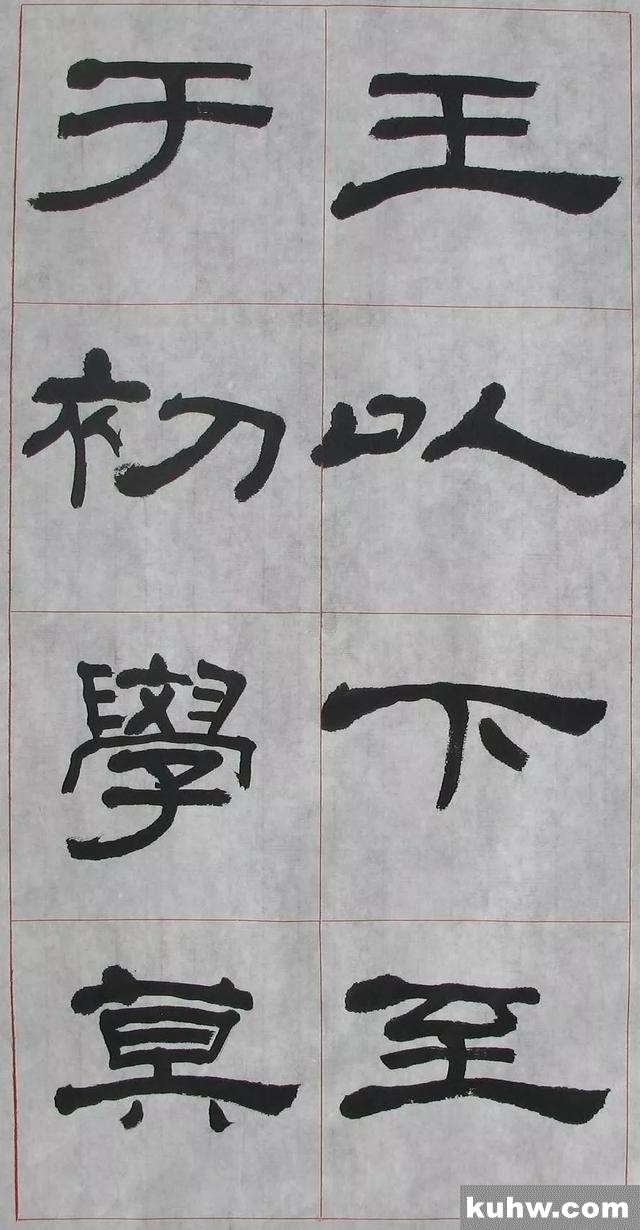 王以下至
于初學莫
kuhw.com